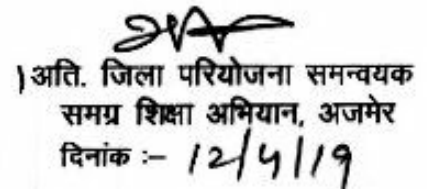 )अति. जिला परियोजना समन्वयक
समग्र शिक्षा अभियान, अजमेर
दिनांक :– 12/4/19